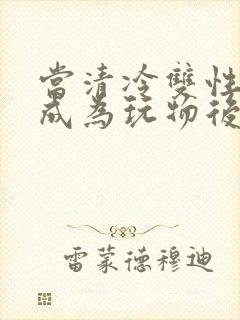 當清冷雙性
成為玩物後
雷蒙德穆迪